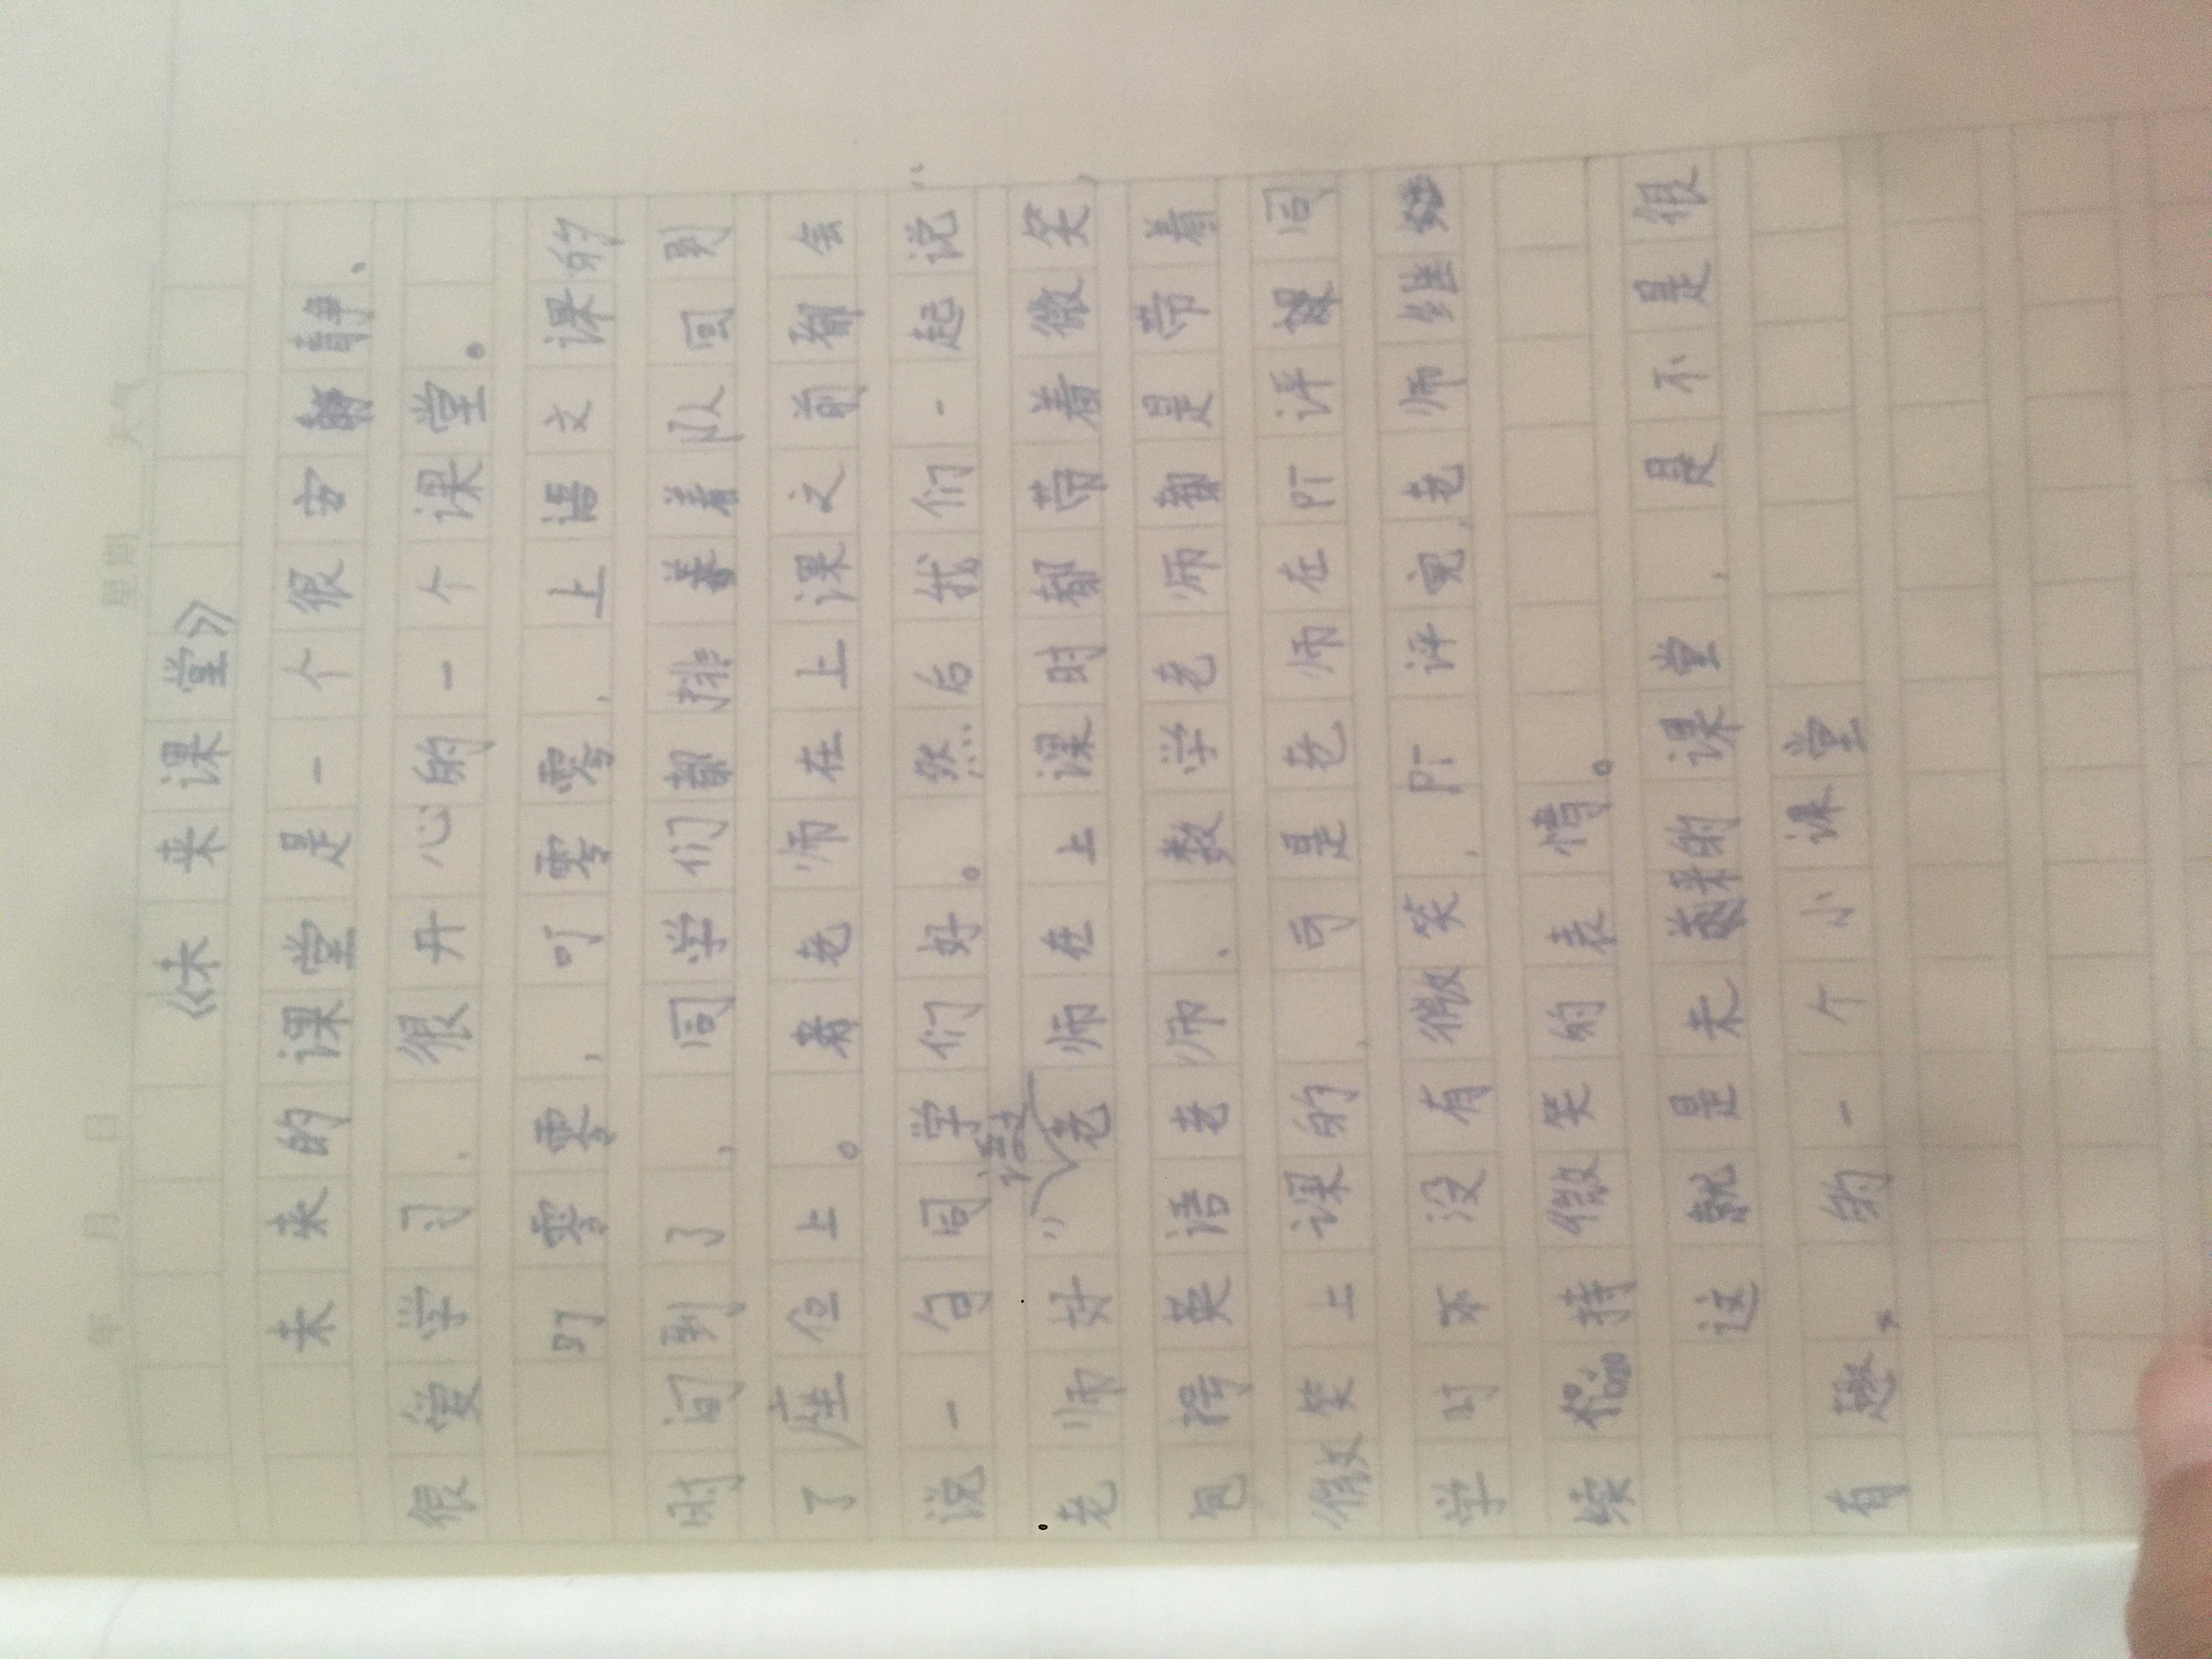 年 月 日 星期 天气
《未来课堂》
未来的课堂是一个很安静、
很爱学习、很开心的一个课堂。
叮零零,叮零零,上语文课的
时间到了,同学们都排着队回到
了座位上。老师在上课文前都会
说一句同学们好。然后我们一起说:
老师好”语文老师在上课时都带着微笑,
英语老师、数学老师都是带着
微笑上课的,可是老师在PT评课同
学时不没有微笑,PT评完,老师继
续保持微笑的表情。
这就是未来的课堂,是不是很
有趣,的一个小课堂